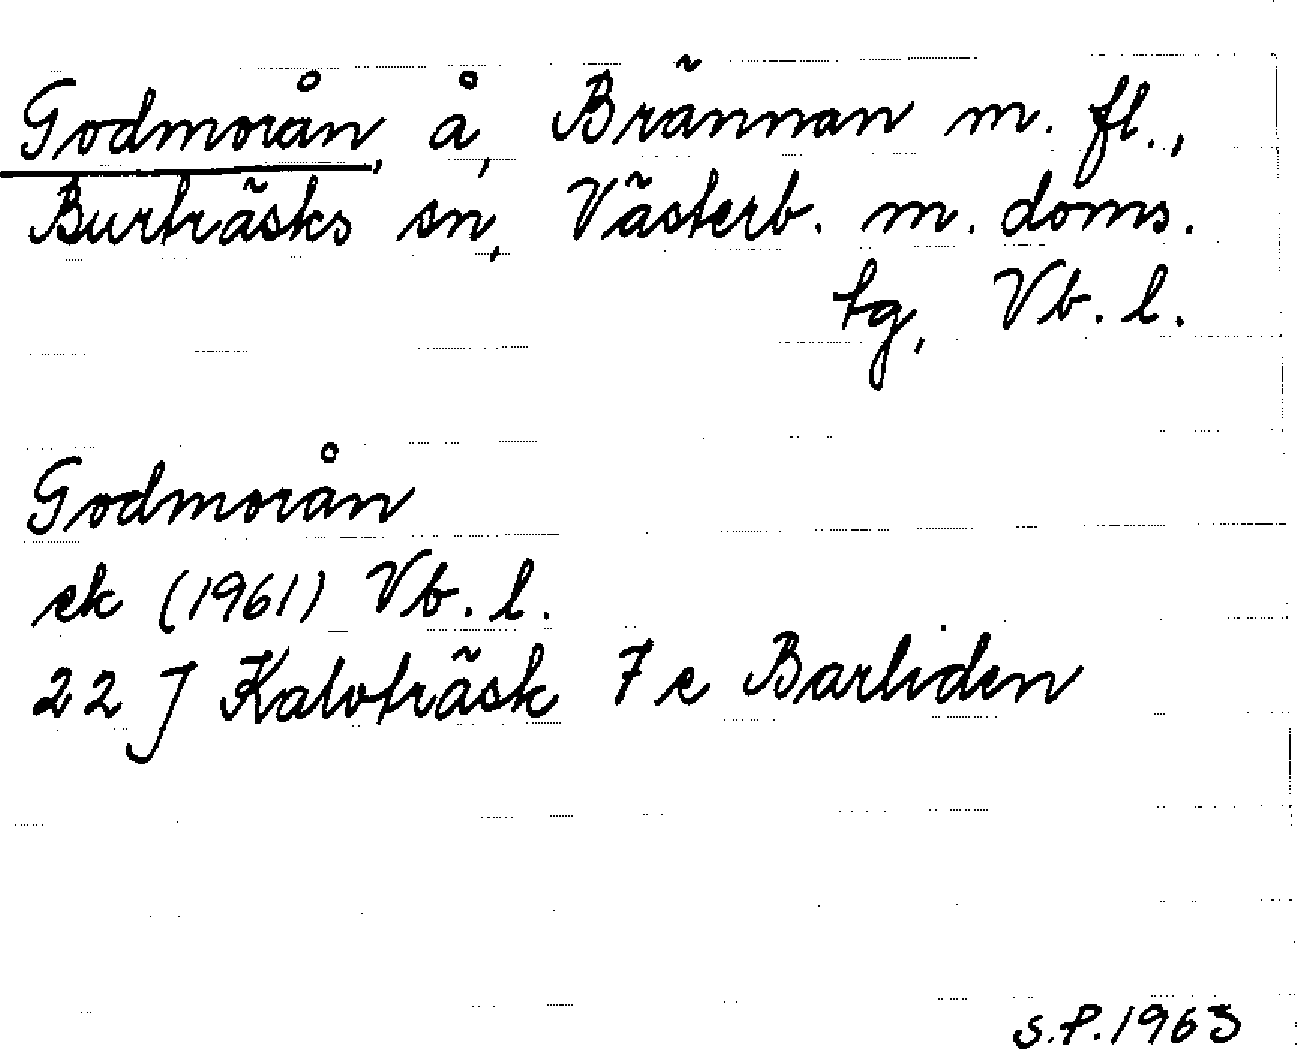 Godmorån, å, Brännan m. fl.,
Burträsks sn, Västerb. m. doms.
tg, Vb. l.
Godmorån
ek (1961) Vb. l.
22 J Kalvträsk 7 e Barliden
S.P. 1963